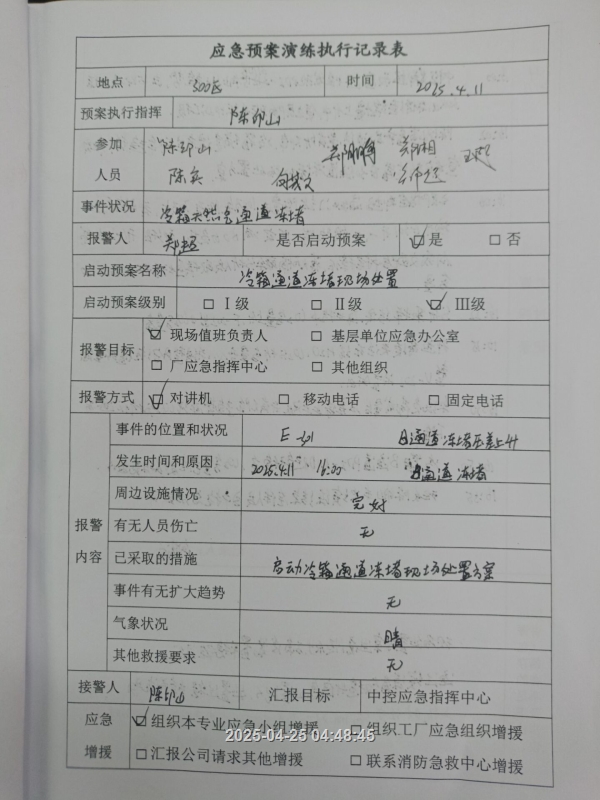 应急预案演练执行记录表
地点 300区 时间 2025.4.11
预案执行指挥 陈印山
参加 陈印山 郑相
人员 陈兵
事件状况 冷箱天然气通道冻堵
报警人 郑超 是否启动预案 ☑是 □否
启动预案名称 冷箱通道冻堵现场处置
启动预案级别 □Ⅰ级 □Ⅱ级 ☑Ⅲ级
报警目标 ☑现场值班负责人 □基层单位应急办公室
□厂应急指挥中心 □其他组织
报警方式 ☑对讲机 □移动电话 □固定电话
报警内容
事件的位置和状况 通道冻堵压差上升
发生时间和原因 2025.4.11 16:00 通道冻堵
周边设施情况 完好
有无人员伤亡 无
已采取的措施 启动冷箱通道冻堵现场处置方案
事件有无扩大趋势 无
气象状况 晴
其他救援要求 无
接警人 陈印山 汇报目标 中控应急指挥中心
应急 ☑组织本专业应急小组增援 □组织工厂应急组织增援
增援 □汇报公司请求其他增援 □联系消防急救中心增援
2025-04-25 04:48:45